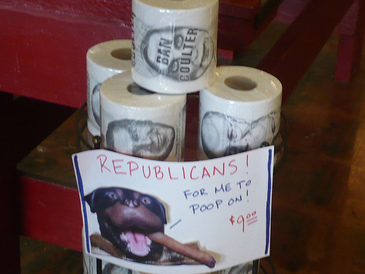 BAN
COULTER
REPUBLICANS!
FOR ME TO
POOP ON!
$9.00